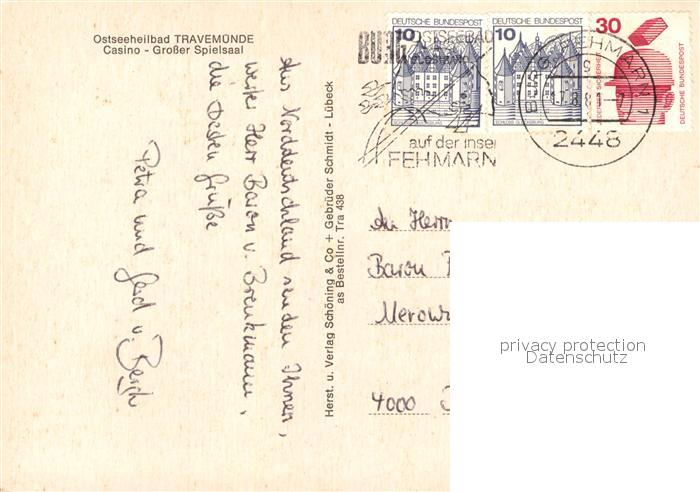 Ostseeheilbad TRAVEMÜNDE
Casino - Großer Spielsaal
Aus Norddeutschland senden Ihnen,
werter Herr Baron v. Brenkmann,
die besten Grüße
Petra und Gerd v. Bergh
Herst. u. Verlag Schöning & Co + Gebrüder Schmidt - Lübeck
as Bestellnr. Tra 438
DEUTSCHE BUNDESPOST
10
DEUTSCHE BUNDESPOST
10
30
DEUTSCHE BUNDESPOST
BURG
OSTSEEBAD
auf der Insel
FEHMARN
BURG, FEHMARN 1
2448
An Herrn
Baron
4000
privacy protection
Datenschutz